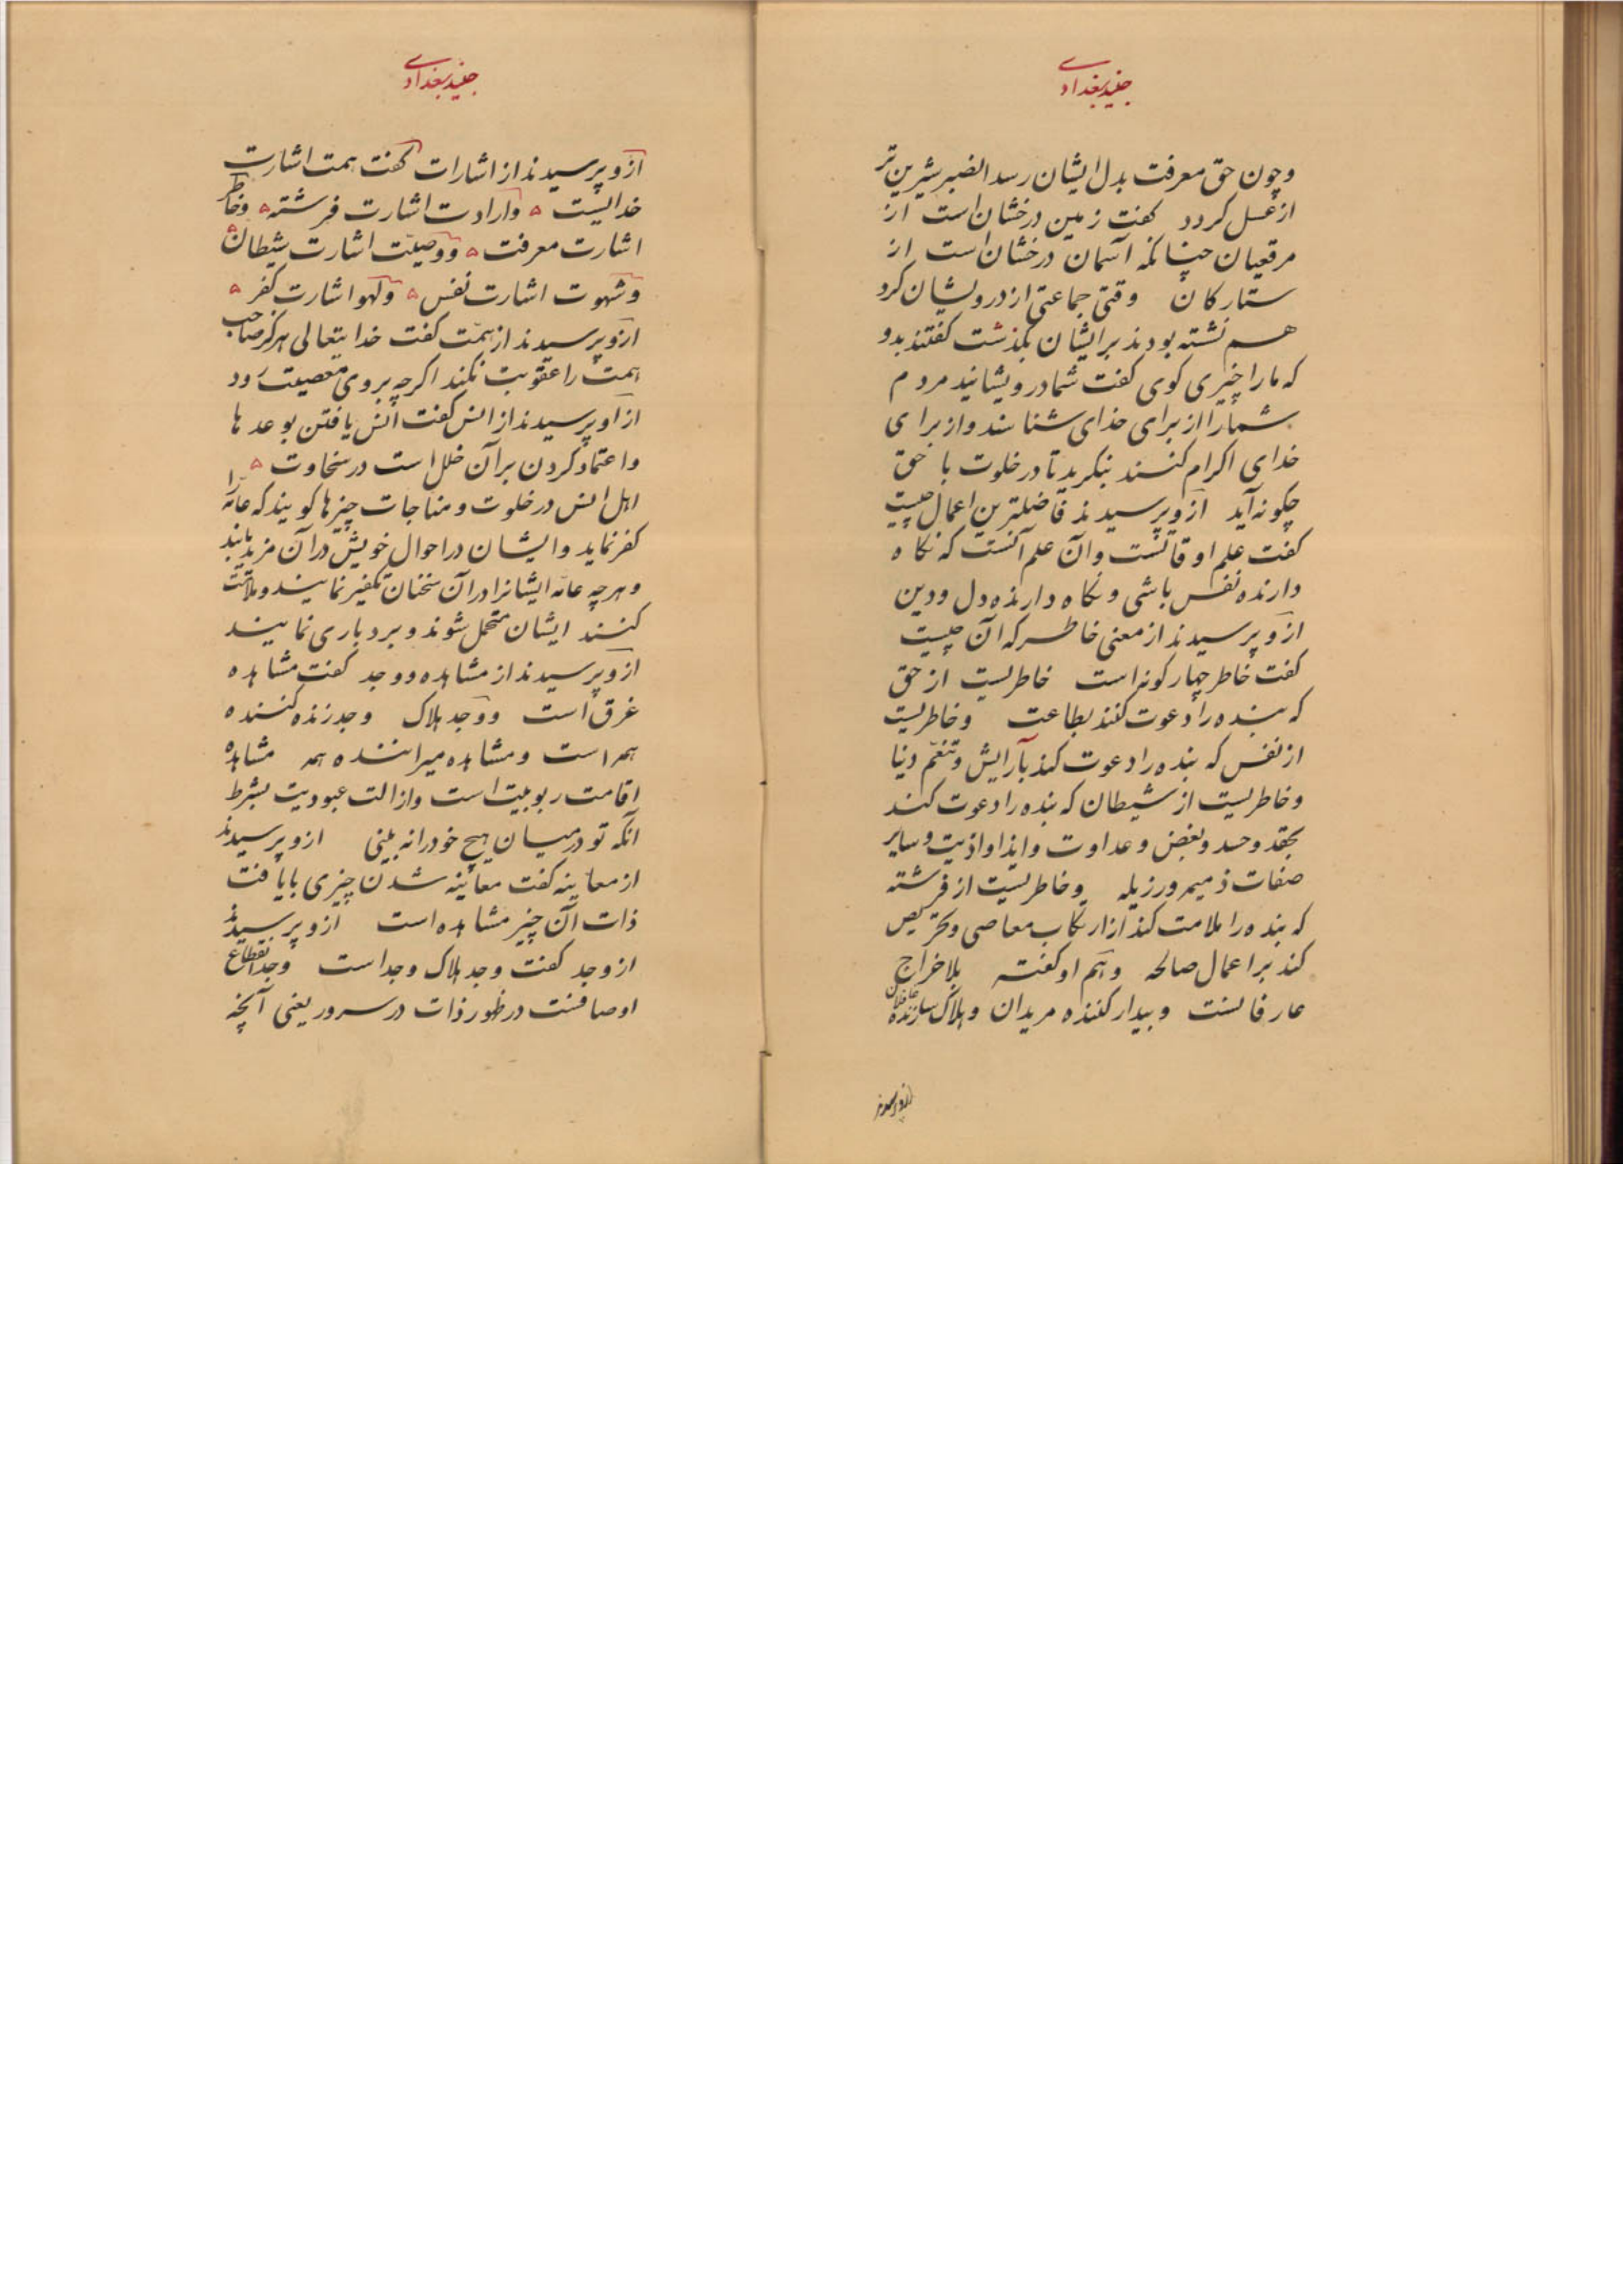 جنید بغدادی
وچون حق معرفت بدل ایشان رسد الصبر شیرین تر
از عسل کردد کفت زمین درخشان است از
مرقعیان چنانکه آسمان درخشان است از
ستارکان وقتی جماعتی از درویشان کرد
هم نشسته بودند برایشان بکذشت کفتند بدو
که ما را چیزی کوی کفت شما درویشانید مردم
شما را از برای خدای شناسند و از برای
خدای اکرام کنند بنکرید تا در خلوت با حق
چکونه آید ازو پرسیدند فاضلترین اعمال چیست
کفت علم اوقاتست وآن علم آنست که نکاه
دارنده نفس باشی و نکاه دارنده دل و دین
ازو پرسیدند از معنی خاطر که آن چیست
کفت خاطر چهار کونه است خاطریست از حق
که بنده را دعوت کند بطاعت وخاطریست
از نفس که بنده را دعوت کند بآرایش وتنعّم دنیا
وخاطریست از شیطان که بنده را دعوت کند
بحقد وحسد وبغض وعداوت وایذا واذیت وسایر
صفات ذمیمه ورزیله وخاطریست از فرشته
که بنده را ملامت کند از ارتکاب معاصی وتحریص
کند بر اعمال صالحه وهم او کفته بلا خراج
عارفانست وبیدار کننده مریدان وهلاک سازنده غافلان
ازو پرسیدند
جنید بغدادی
ازو پرسیدند از اشارات کفت همت اشارت
خدایست وارادت اشارت فرشته وخاطر
اشارت معرفت ووصیّت اشارت شیطان
وشهوت اشارت نفس ولهو اشارت کفر
ازو پرسیدند از همّت کفت خدایتعالی هرکز صاحب
همت را عقوبت نکند اکرچه بروی معصیت رود
از او پرسیدند از انس کفت انس یافتن بوعدها
واعتماد کردن بر آن خلل است در سخاوت
اهل انس در خلوت ومناجات چیزها کویند که عامّه را
کفر نماید وایشان در احوال خویش در آن مزید یابند
وهرچه عامّه ایشانرا در آن سخنان تکفیر نمایند وملامت
کنند ایشان متحمل شوند وبردباری نمایند
ازو پرسیدند از مشاهده ووجد کفت مشاهده
غرق است ووجد هلاک وجد زنده کننده
همه است ومشاهده میراننده همه مشاهده
اقامت ربوبیت است وازالت عبودیت بشرط
آنکه تو در میان هیچ خود را نه بینی ازو پرسیدند
از معاینه کفت معاینه شدن چیزی با یافت
ذات آن چیز مشاهده است ازو پرسیدند
از وجد کفت وجد هلاک وجد است وجد انقطاع
اوصافست در ظهور ذات در سرور یعنی آنچه